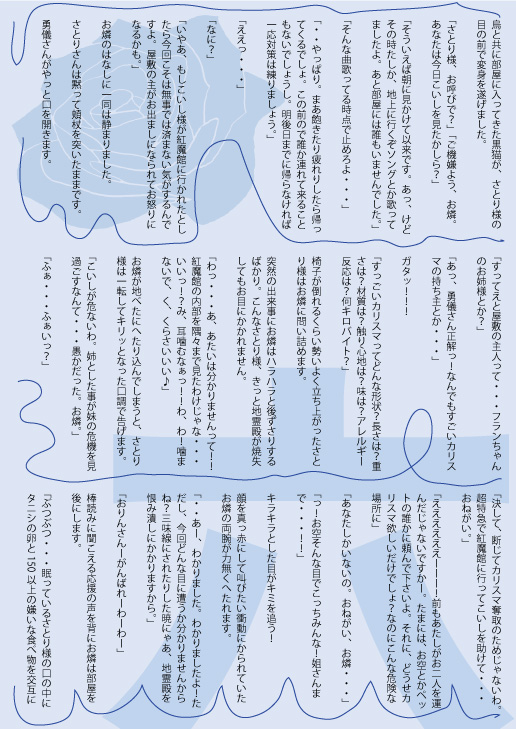 烏と共に部屋に入ってきた黒猫が、さとり様の
目の前で変身を遂げました。
「さとり様、お呼びで？」「ご機嫌よう、お燐。
あなたは今日こいしを見たかしら？」
「そういえば朝に見かけて以来です。あっ、けど
その時たしか、地上に行くぞソングとか歌って
ましたよ。あと部屋には誰もいませんでした。」
「そんな曲歌ってる時点で止めろよ・・・」
「・・・やっぱり。まあ飽きたり疲れりしたら帰っ
てくるでしょ。この前ので誰か連れて来ること
もないでしょうし。明後日までに帰らなければ
一応対策は練りましょう。」
「ええっ・・・・」
「なに？」
「いやあ、もしこいし様が紅魔館に行かれたとし
たら今回こそは無事では済まない気がするんで
すよ。屋敷の主がお出ましになられてお怒りに
なるかも。」
お燐のはなしに一同は静まりました。
さとりさんは黙って頬杖を突いたままです。
勇儀さんがやっと口を開きます。
「すってえと屋敷の主人って・・・フランちゃん
のお姉様とか？」
「あっ、勇儀さん正解っ！なんでもすごいカリス
マの持ち主とか・・・」
ガタッ！！！
「すっごいカリスマってどんな形状？長さは？重
さは？材質は？触り心地は？味は？アレルギー
反応は？何キロバイト？」
椅子が倒れるくらい勢いよく立ち上がったさと
り様はお燐に問い詰めます。
突然の出来事にお燐はハラハラと後ずさりする
ばかり。こんなさとり様、きっと地霊殿が焼失
してもお目にかかれません。
「わっ・・・あ、あたいは分かりませんって！！
紅魔館の内部を隅々まで見たわけじゃな・・・
いいっ！？み、耳噛むなぁっ！！わ、わ！噛ま
ないで、く、くらさいいい♪」
お燐が地べたにへたり込んでしまうと、さとり
様は一転してキリッとなった口調で告げます。
「こいしが危ないわ。姉とした事が妹の危機を見
過ごすなんて・・・愚かだった。お燐。」
「ふぁ・・・ふぁいっ？」
「決して、断じてカリスマ奪取のためじゃないわ。
超特急で紅魔館に行ってこいしを助けて・・・
おねがい。」
「えええええええーーー！前もあたしがお二人を運
んだじゃないですかー。たまには、お空とかペッ
トの誰かに頼んで下さいよ。それに、どうせカ
リスマ欲しいだけでしょ？なのにこんな危険な
場所に」
「あなたしかいないの。おねがい、お燐・・・」
「つーお空そんな目でこっちみんな！姐さんま
で・・・！！」
キラキラとした目がキミを追う！
顔を真っ赤にして叫びたい衝動にかられていた
お燐の両腕が力無くへたれます。
「・・あー、わかりました。わかりましたよ！た
だし、今回どんな目に遭うか分かりませんから
ね？三味線にされたりした暁にゃあ、地霊殿を
恨み潰しにかかりますから。」
「おりんさんーがんばれーわーわー」
棒読みに聞こえる応援の声を背にお燐は部屋を
後にします。
「ぶつぶつ・・・眠っているさとり様の口の中に
タニシの卵と150以上の嫌いな食べ物を交互に